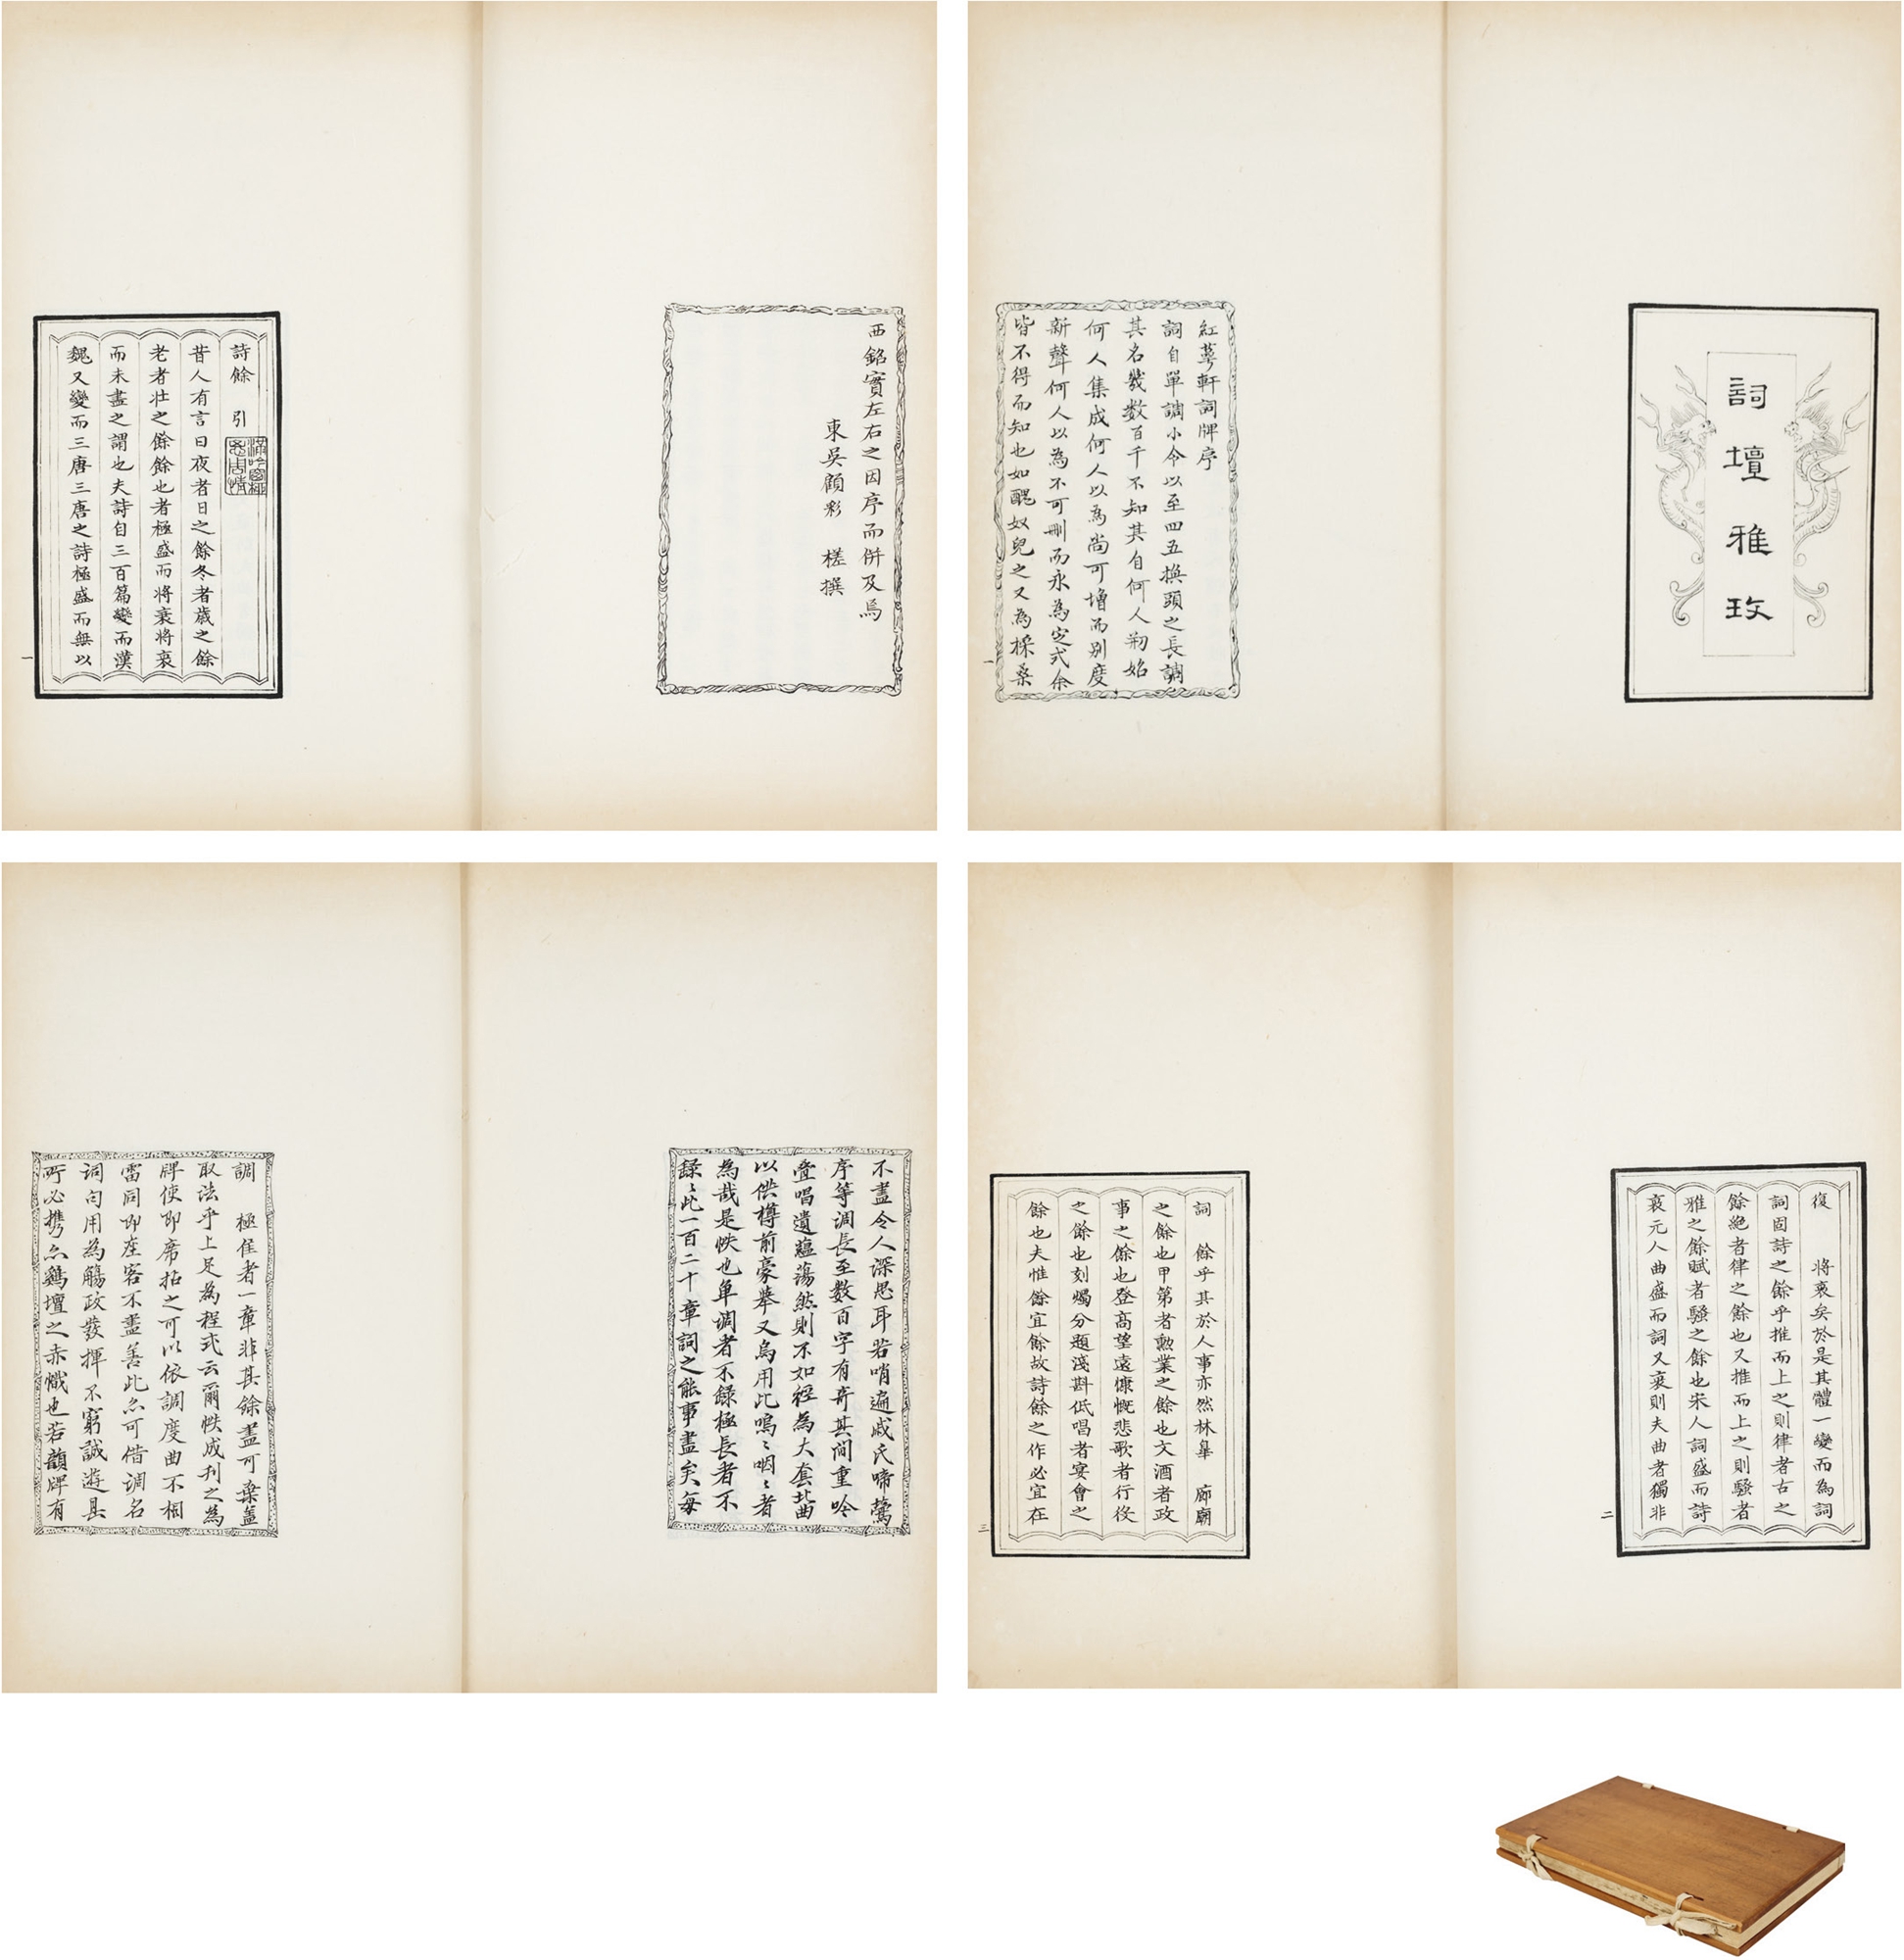 詞壇雅玫
紅萼軒詞牌序
詞自單調小令以至四五換頭之長調
其名幾数百千不知其自何人剏始
何人集成何人以為尚可增而别度
新聲何人以為不可刪而永為定式余
皆不得而知也如醜奴兒之又為採桑
一
西銘實左右之因序而併及焉
東吳顧彩 槎撰
詩餘 引
昔人有言曰夜者日之餘冬者歲之餘
老者壮之餘餘也者極盛而将衰将衰
而未盡之謂也夫詩自三百篇變而漢
魏又變而三唐三唐之詩極盛而無以
一
復 將衰矣於是其體一變而為詞
詞固詩之餘乎推而上之則律者古之
餘絶者律之餘也又推而上之則騷者
雅之餘賦者騷之餘也宋人詞盛而詩
衰元人曲盛而詞又衰則夫曲者獨非
二
詞 餘乎其於人事亦然林皋 廊廟
之餘也甲第者勲業之餘也文酒者政
事之餘也登高望遠慷慨悲歌者行役
之餘也刻燭分題淺斟低唱者宴會之
餘也夫惟餘宜餘故詩餘之作必宜在
三
不盡令人深思耳若哨遍戚氏啼鶯
序等調長至数百字有奇其间重吟
疊唱遺蘊蕩然則不如徑為大套北曲
以供樽前豪舉又烏用此嗚〻咽〻者
為哉是帙也单調者不錄極長者不
録〻此一百二十章詞之能事盡矣每
調 極佳者一章非其餘盡可棄盖
取法乎上足為程式云爾帙成刋之為
牌使即席拈之可以依調度曲不相
雷同即座客不盡善此亦可借调名
词句用為觴政發揮不窮誠遊具
所必携亦鷄壇之赤幟也若韻牌有